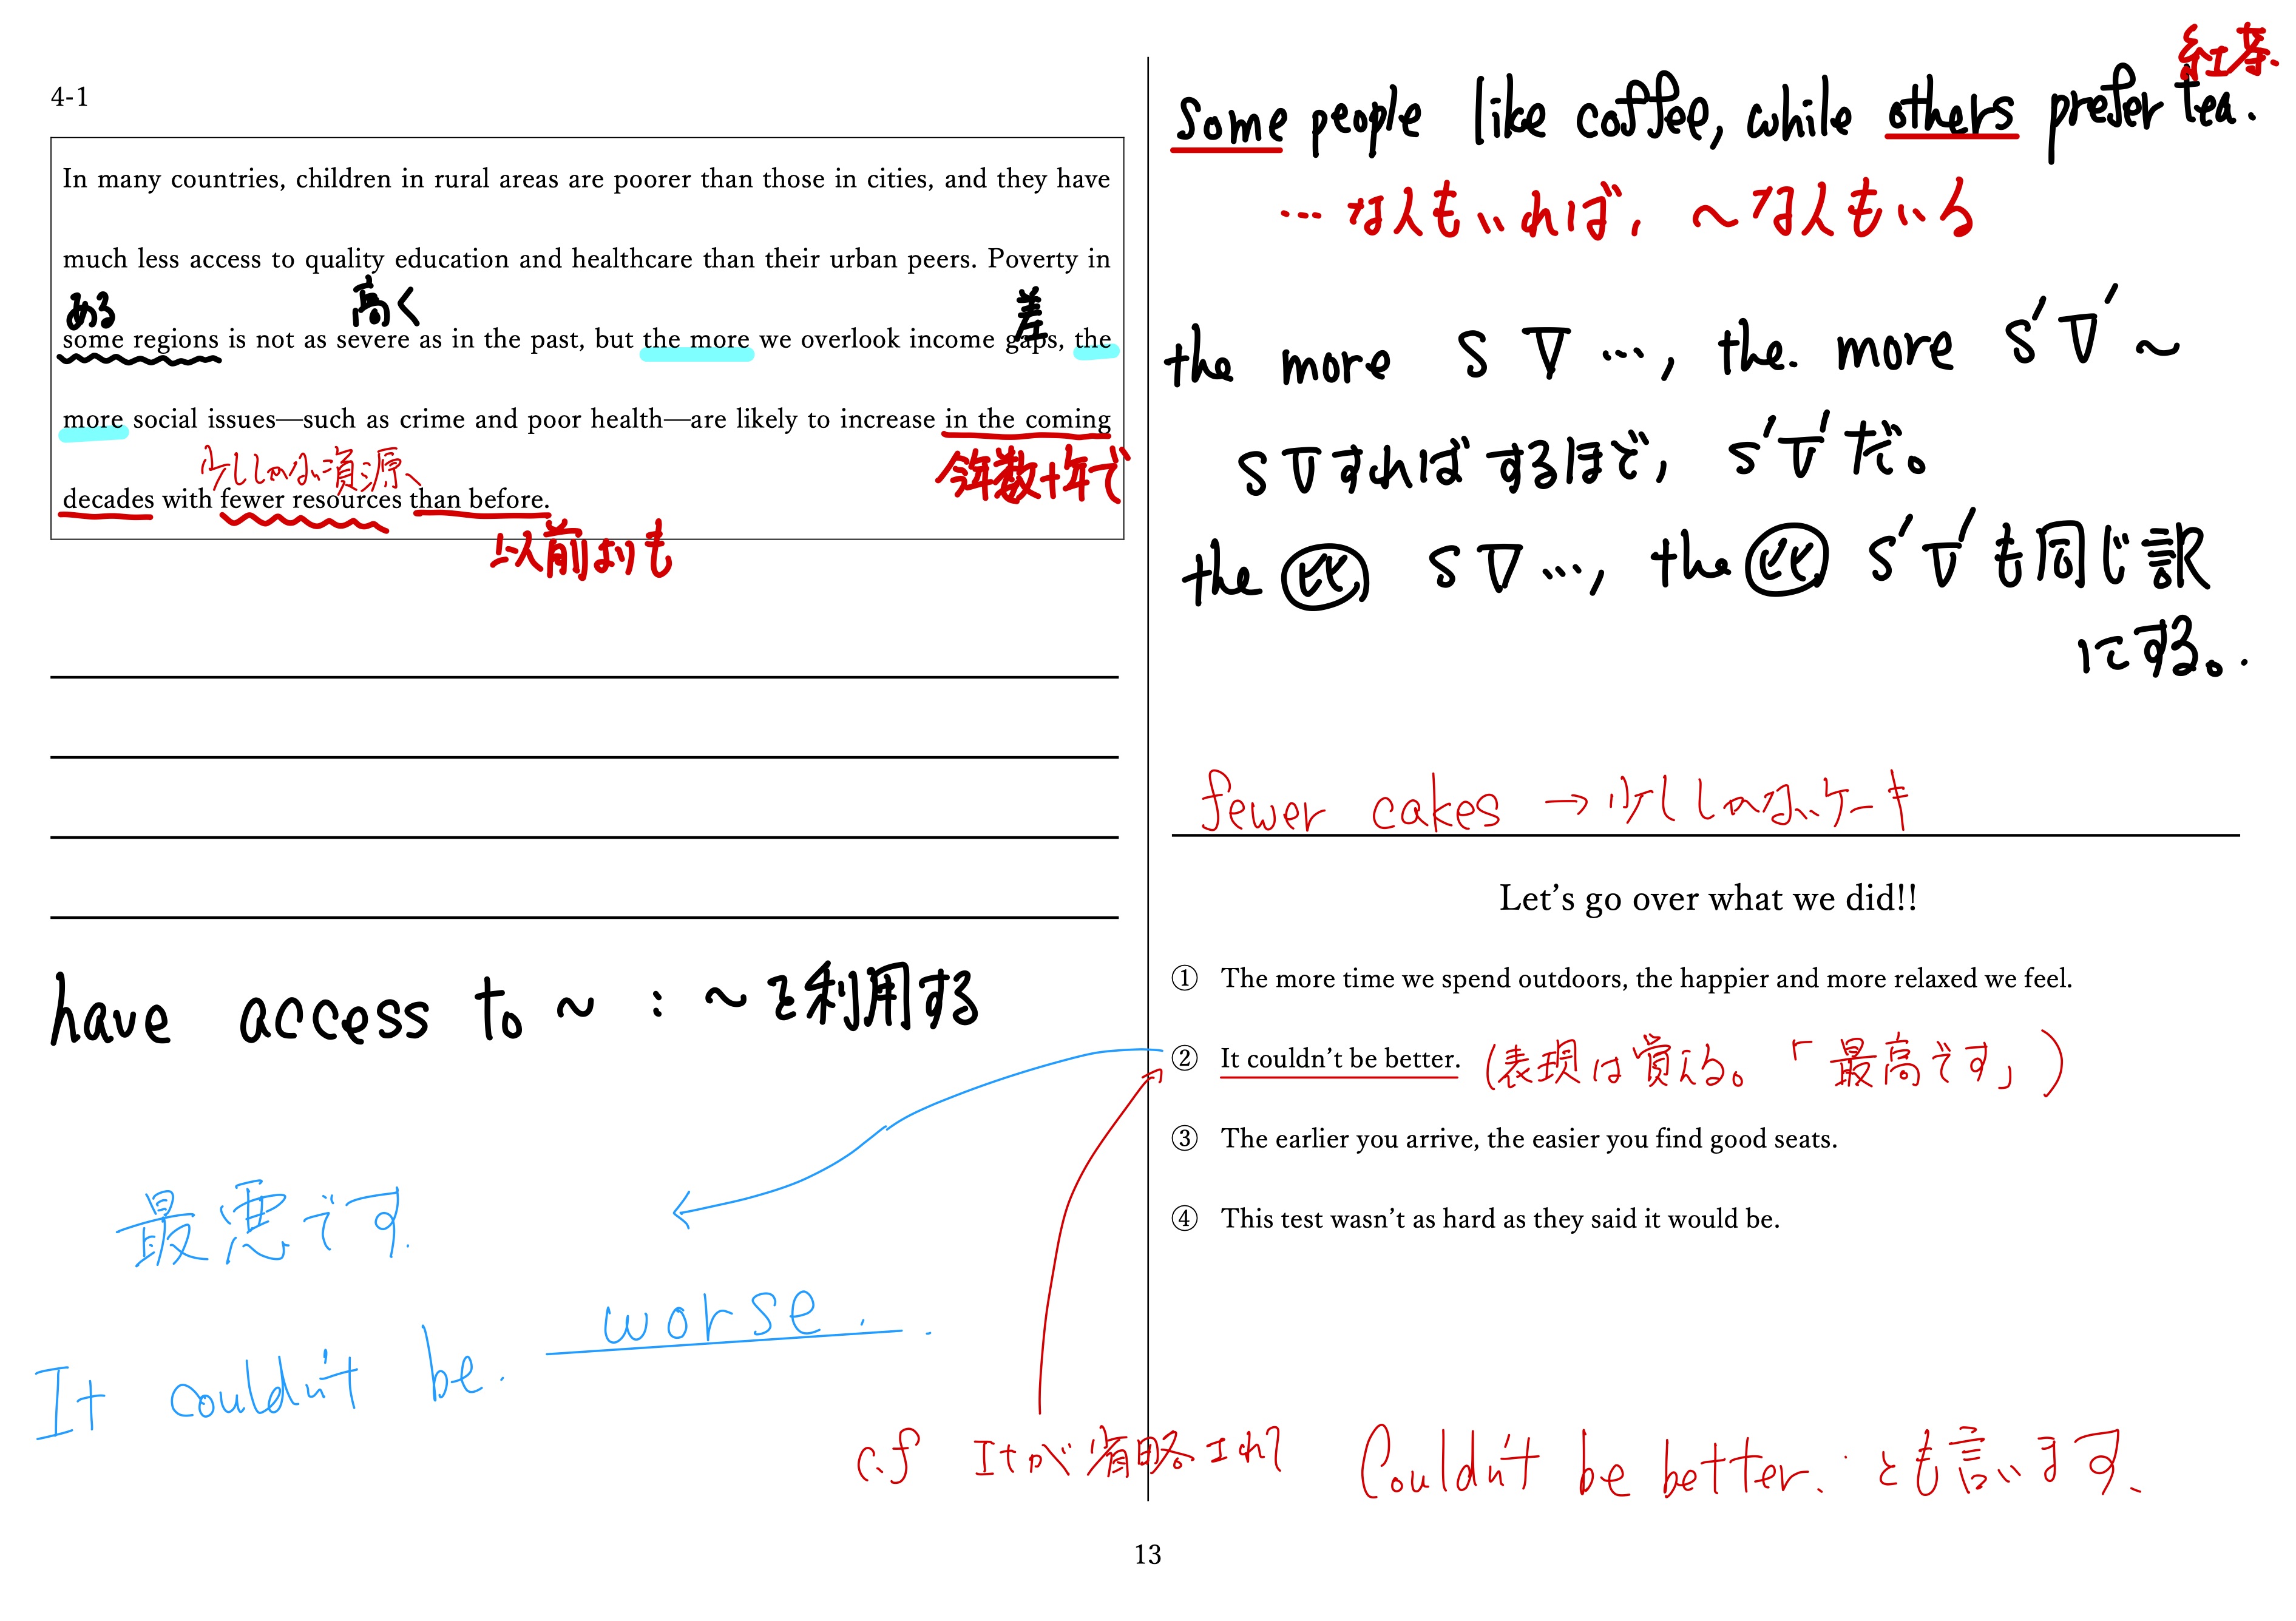 4-1
In many countries, children in rural areas are poorer than those in cities, and they have
much less access to quality education and healthcare than their urban peers. Poverty in
ある 高く 差
some regions is not as severe as in the past, but the more we overlook income gaps, the
more social issues—such as crime and poor health—are likely to increase in the coming
少ししかない資源、 今年数十年で
decades with fewer resources than before.
以前よりも
have access to ~ : ~を利用する
最悪です.
It couldn't be. worse. .
紅茶、
Some people like coffee, while others prefer tea.
… な人もいれば, ～な人もいる
the more S V …, the. more S' V' ~
S V すればするほど, S' V' だ。
the 比 S V …, the 比 S' V' も同じ訳
にする。.
fewer cakes → 少ししかないケーキ
Let's go over what we did!!
① The more time we spend outdoors, the happier and more relaxed we feel.
② It couldn't be better. (表現は覚える。「最高です」)
③ The earlier you arrive, the easier you find good seats.
④ This test wasn't as hard as they said it would be.
c.f Itが省略されて Couldn't be better. とも言います、
13